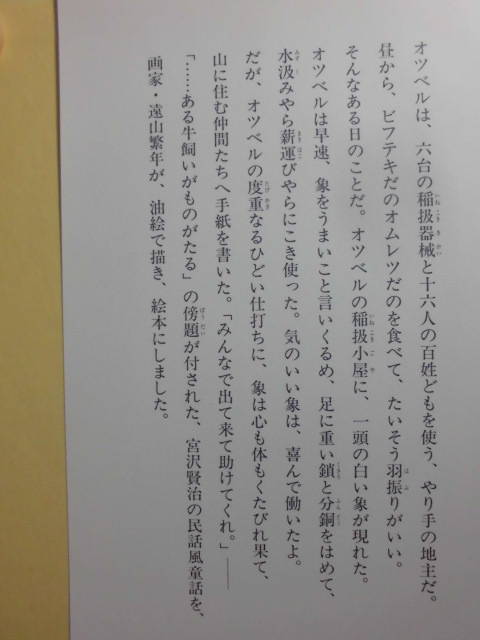 オツベルは、六台の稲扱器械と十六人の百姓どもを使う、やり手の地主だ。
昼から、ビフテキだのオムレツだのを食べて、たいそう羽振りがいい。
そんなある日のことだ。オツベルの稲扱小屋に、一頭の白い象が現れた。
オツベルは早速、象をうまいこと言いくるめ、足に重い鎖と分銅をはめて、
水汲みやら薪運びやらにこき使った。気のいい象は、喜んで働いたよ。
だが、オツベルの度重なるひどい仕打ちに、象は心も体もくたびれ果て、
山に住む仲間たちへ手紙を書いた。「みんなで出て来て助けてくれ。」――
「……ある牛飼いがものがたる」の傍題が付された、宮沢賢治の民話風童話を、
画家・遠山繁年が、油絵で描き、絵本にしました。